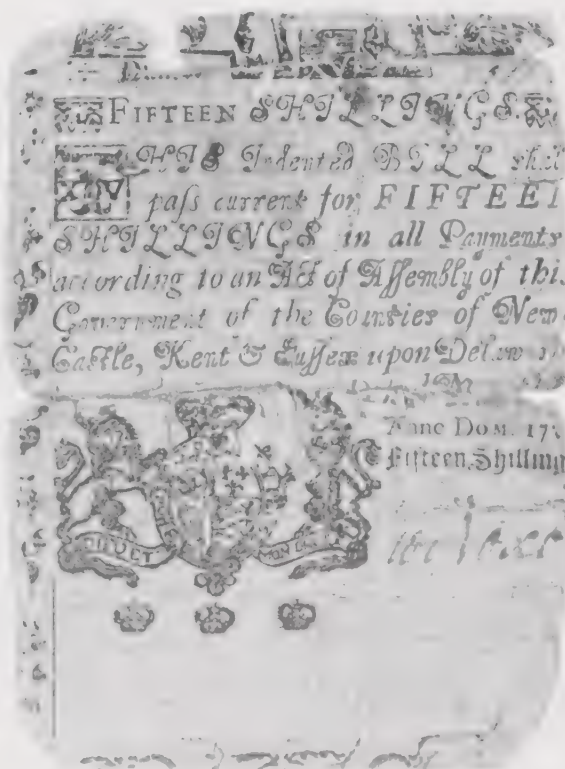 FIFTEEN SHILLINGS.
THIS Indented BILL shal
XV paſs current for FIFTEEN
SHILLINGS in all Payments
according to an Act of Aſſembly of this
Government of the Counties of New
Caſtle, Kent & Suſſex upon Delaw
Anno DOM. 17
Fifteen Shilling
DIEU ET MON